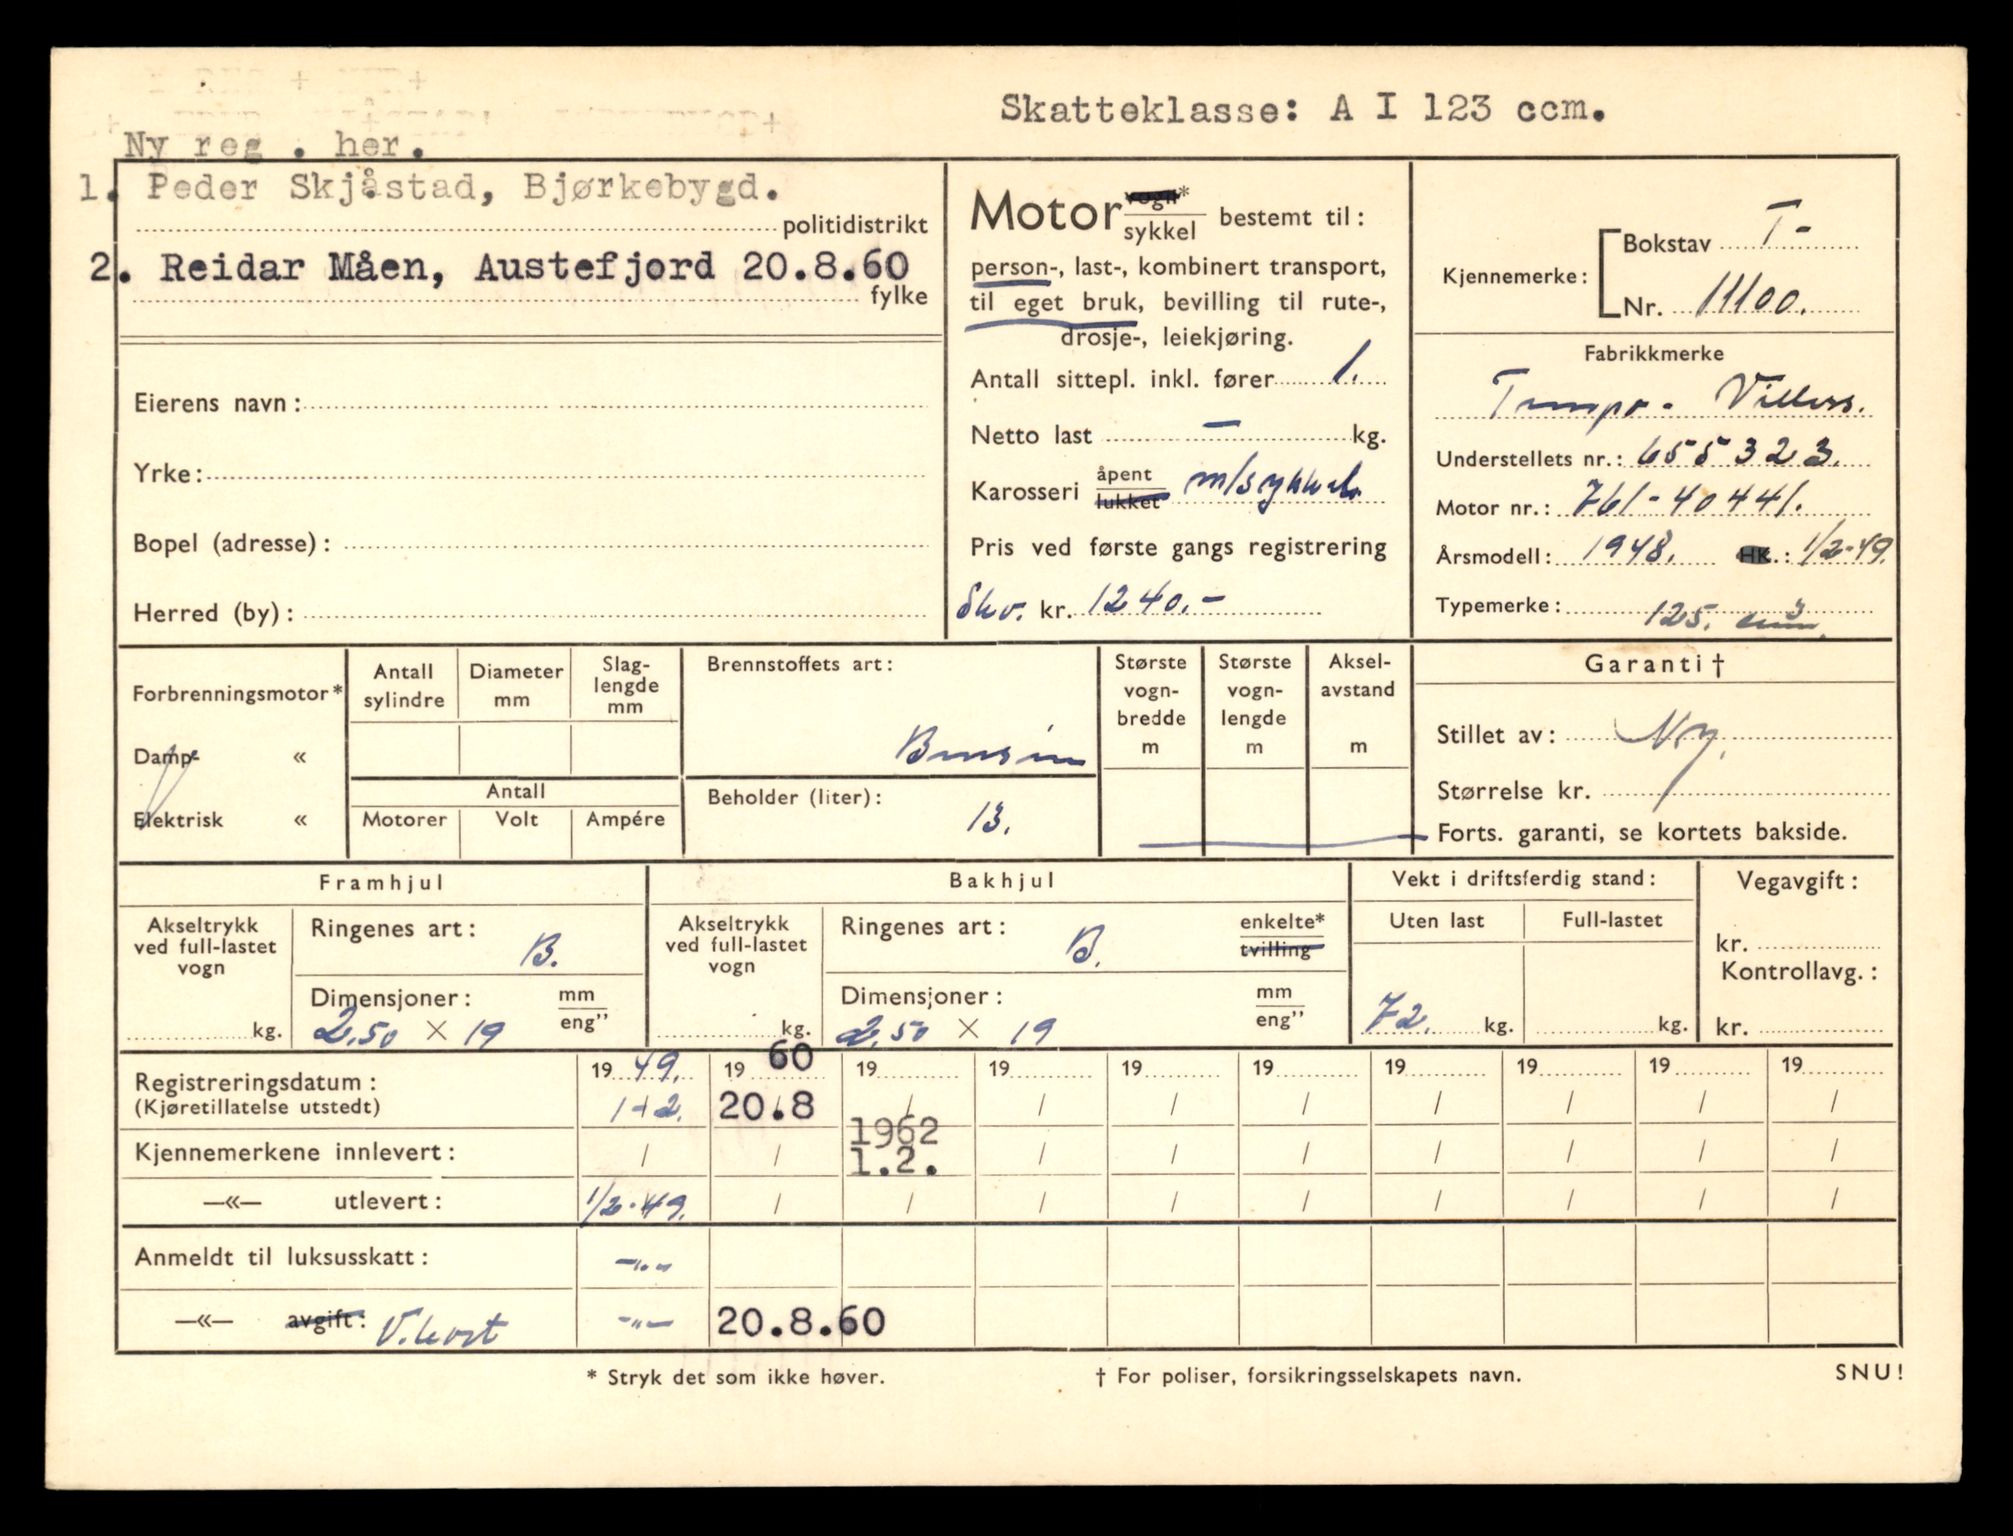 Skatteklasse: A I 123 ccm.
Ny reg . her.
1. Peder Skjåstad, Bjørkebygd.
politidistrikt
2. Reidar Måen, Austefjord 20.8.60
fylke
Eierens navn:
Yrke:
Bopel (adresse):
Herred (by):
Motor vogn* sykkel bestemt til:
person-, last-, kombinert transport,
til eget bruk, bevilling til rute-,
drosje-, leiekjøring.
Antall sittepl. inkl. fører 1.
Netto last – kg.
Karosseri åpent lukket m/sykkel.
Pris ved første gangs registrering
Skv. kr. 1240.-
Kjennemerke: Bokstav T-
Nr. 11100.
Fabrikkmerke
Tempo - Villiers.
Understellets nr.: 655323.
Motor nr.: 761-40441.
Årsmodell: 1948. HK.: 1/2-49.
Typemerke: 125.
Forbrenningsmotor*
Damp- «
Elektrisk «
Antall sylindre
Diameter mm
Slag-lengde mm
Antall
Motorer Volt Ampére
Brennstoffets art:
Bensin
Beholder (liter):
13.
Største vogn-bredde m
Største vogn-lengde m
Aksel-avstand m
Garanti †
Stillet av: Ny.
Størrelse kr.
Forts. garanti, se kortets bakside.
Framhjul
Akseltrykk ved full-lastet vogn
kg.
Ringenes art: B.
Dimensjoner: mm eng”
2,50 × 19
Bakhjul
Akseltrykk ved full-lastet vogn
kg.
Ringenes art: B. enkelte* tvilling
Dimensjoner: mm eng”
2,50 × 19
Vekt i driftsferdig stand:
Uten last Full-lastet
72. kg. kg.
Vegavgift:
kr.
Kontrollavg.:
kr.
Registreringsdatum: 19 49. 19 60 19 19 19 19 19 19 19 19
(Kjøretillatelse utstedt) 1-2. 20.8 / / / / / / / /
Kjennemerkene innlevert: / / 1962 1.2. / / / / / / /
—«— utlevert: 1/2-49. / / / / / / / / /
Anmeldt til luksusskatt: -"-
—«— avgift: V.kort -"- 20.8.60
* Stryk det som ikke høver.
† For poliser, forsikringsselskapets navn.
SNU!